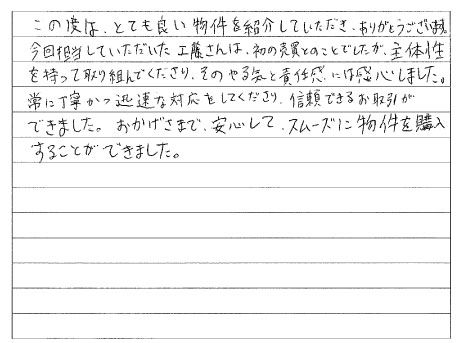 この度は、とても良い物件を紹介していただき、ありがとうございます。
今回担当していただいた工藤さんは、初の売買とのことでしたが、主体性
を持って取り組んでくださり、そのやる気と責任感には感心しました。
常に丁寧かつ迅速な対応をしてくださり、信頼できるお取引が
できました。おかげさまで、安心して、スムーズに物件を購入
することができました。